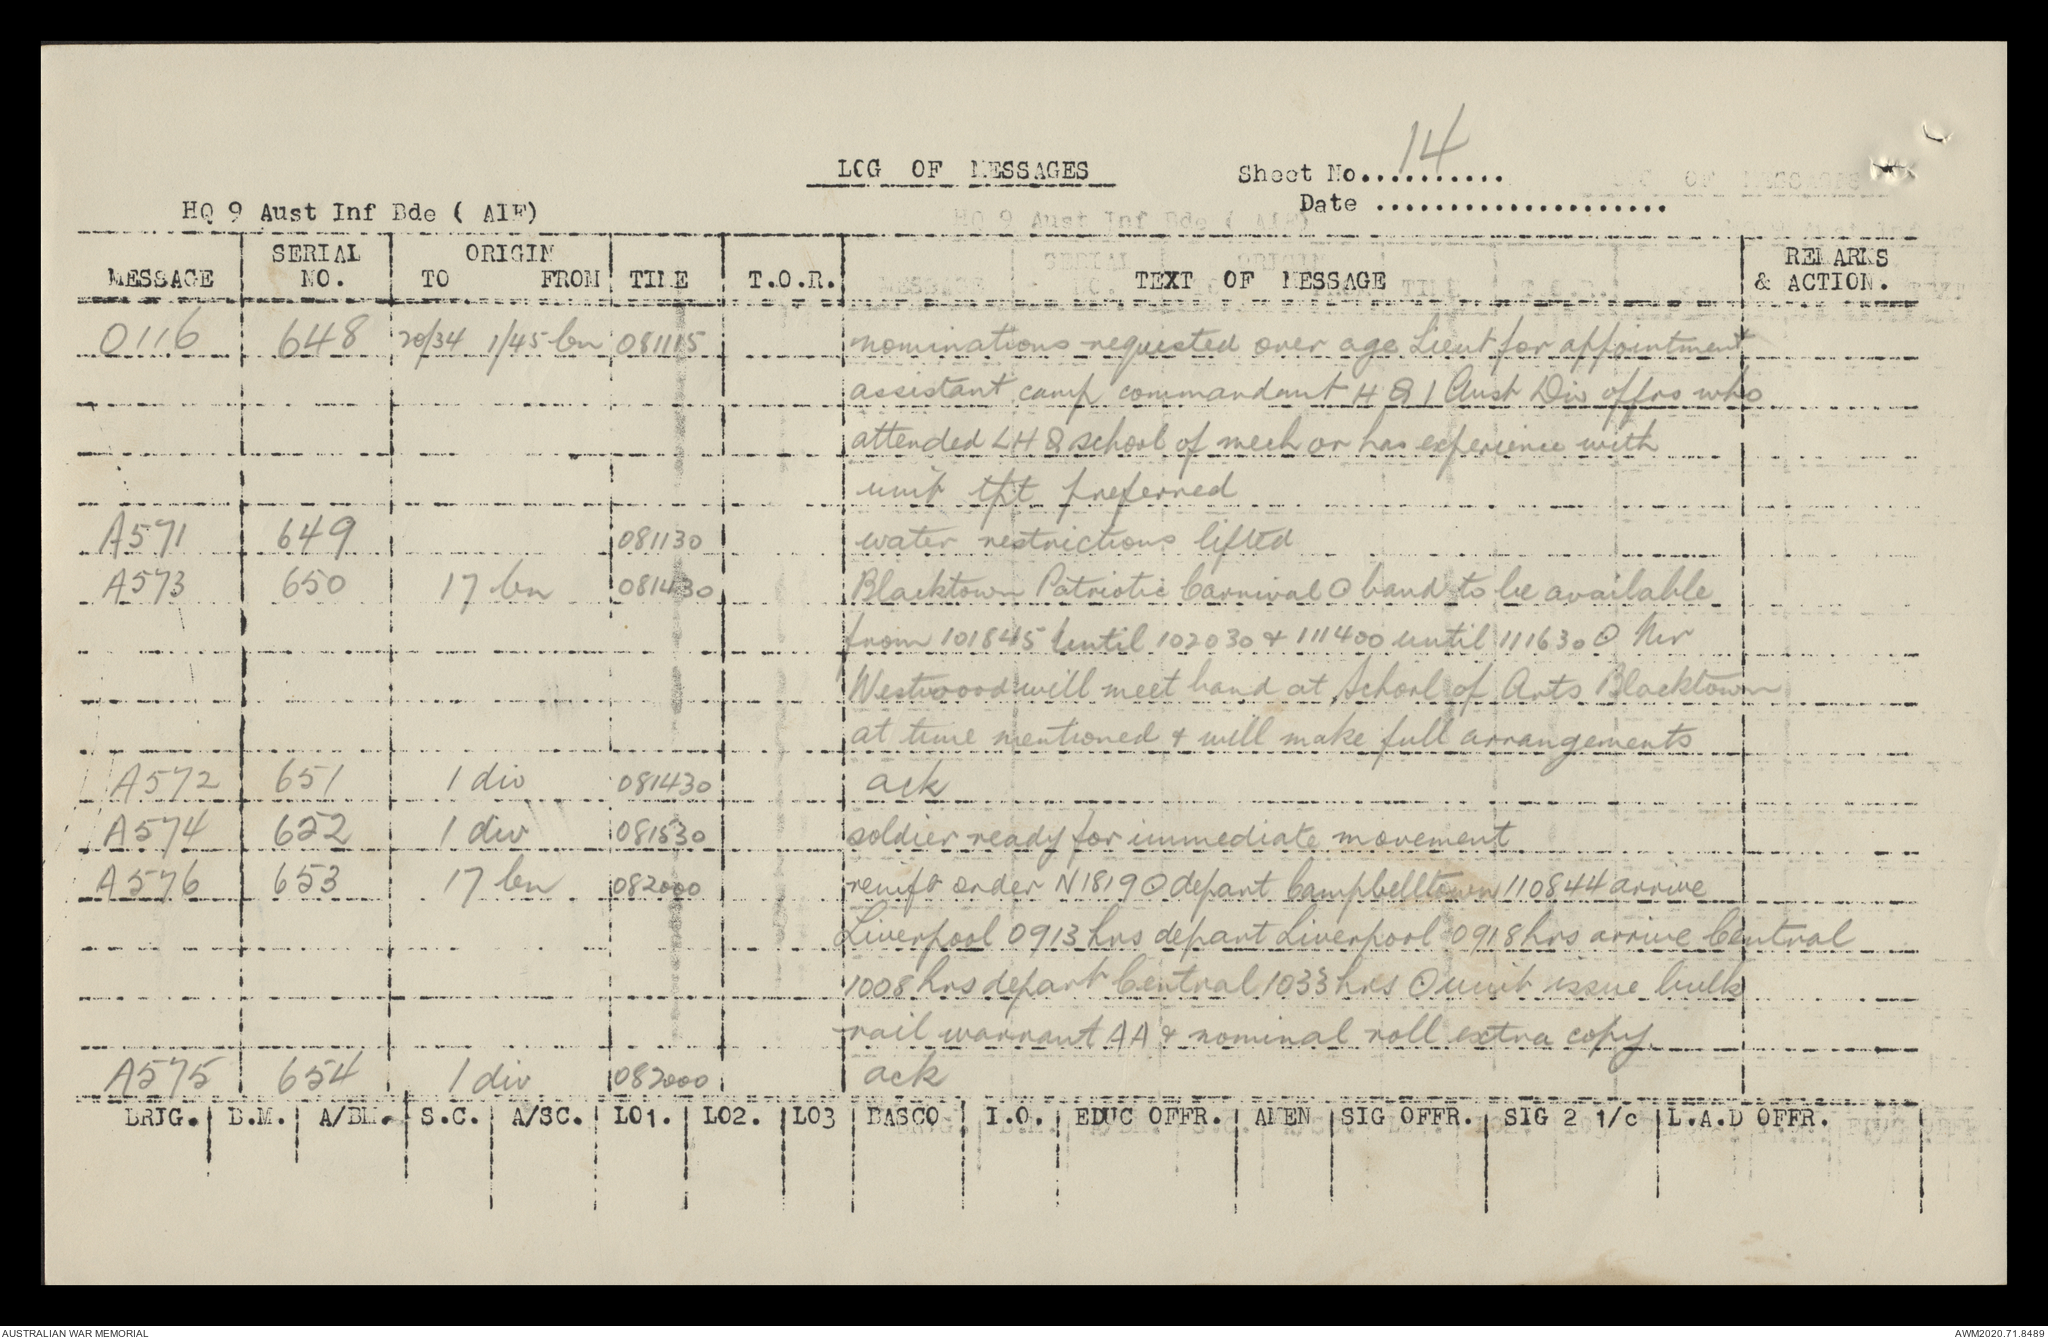 LOG OF MESSAGES
Sheet No........... 14
Date ....................
HQ 9 Aust Inf Bde ( AIF)
MESSAGE SERIAL NO. ORIGIN TO FROM TIME T.O.R. TEXT OF MESSAGE REMARKS & ACTION.
0116 648 20/34 1/45 bn 081115 nominations requested over age Lieut for appointment
assistant camp commandant H Q 1 Aust Div offrs who
attended LHQ school of mech or has experience with
unit tpt preferred
A571 649 081130 water restrictions lifted
A573 650 17 bn 081430 Blacktown Patriotic Carnival O band to be available
from 101845 until 102030 & 111400 until 111630 O Mr
Westwood will meet band at School of Arts Blacktown
at time mentioned & will make full arrangements
A572 651 1 div 081430 ack
A574 652 1 div 081530 soldier ready for immediate movement
A576 653 17 bn 082000 reinft order N1819 O depart Campbelltown 110844 arrive
Liverpool 0913 hrs depart Liverpool 0918 hrs arrive Central
1008 hrs depart Central 1033 hrs O unit issue bulk
rail warrant AA & nominal roll extra copy.
A575 654 1 div 082000 ack
BRIG. B.M. A/BM. S.C. A/SC. LO1. LO2. LO3 BASCO I.O. EDUC OFFR. AMEN SIG OFFR. SIG 2 1/c L.A.D OFFR.
AUSTRALIAN WAR MEMORIAL
AWM2020.71.8489